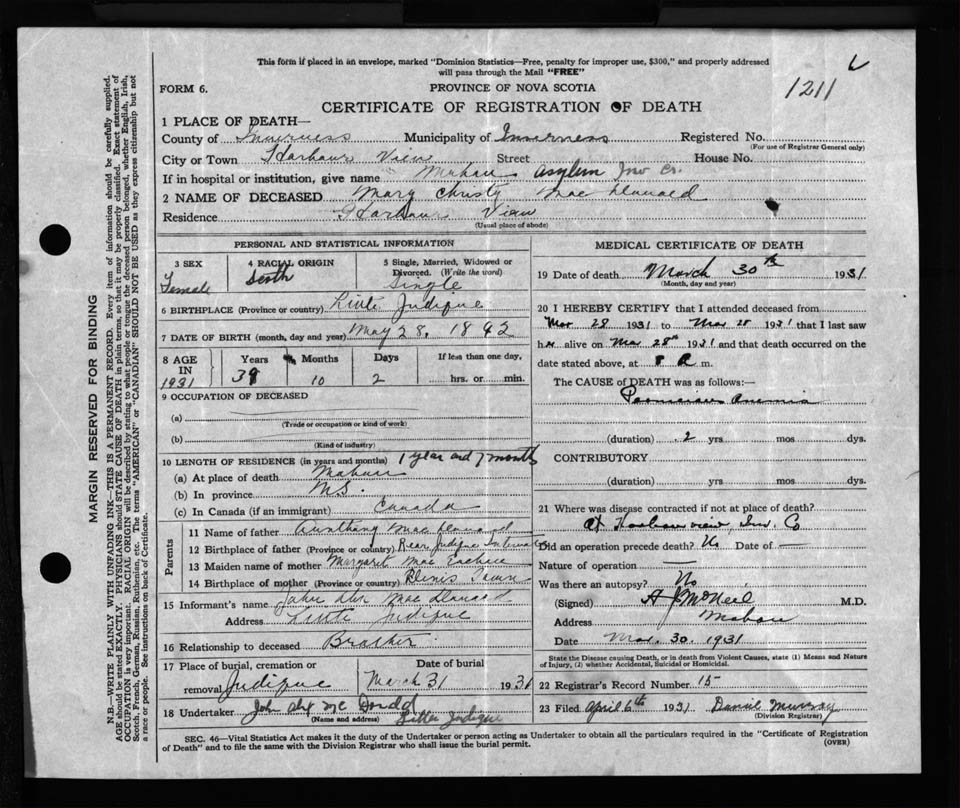 This form if placed in an envelope, marked "Dominion Statistics—Free, penalty for improper use, $300," and properly addressed
will pass through the Mail "FREE"
1211
FORM 6.
PROVINCE OF NOVA SCOTIA
CERTIFICATE OF REGISTRATION OF DEATH
1 PLACE OF DEATH—
County of Inverness Municipality of Inverness Registered No.
(For use of Registrar General only)
City or Town Harbour View Street House No.
If in hospital or institution, give name Mabou asylum Inv Co.
2 NAME OF DECEASED Mary Christy Mac Donald
Residence Harbour View
(Usual place of abode)
PERSONAL AND STATISTICAL INFORMATION
3 SEX Female
4 RACIAL ORIGIN Scotch
5 Single, Married, Widowed or Divorced. (Write the word) Single
6 BIRTHPLACE (Province or country) Judique
7 DATE OF BIRTH (month, day and year) May 28, 1892
8 AGE IN 1931 Years Months Days If less than one day,
10 2 hrs. or min.
9 OCCUPATION OF DECEASED
(a)
(Trade or occupation or kind of work)
(b)
(Kind of industry)
10 LENGTH OF RESIDENCE (in years and months) 1 year and 7 months
(a) At place of death Mabou
(b) In province N.S.
(c) In Canada (if an immigrant) Canada
Parents
11 Name of father Mac Donald
12 Birthplace of father (Province or country) Rear Judique
13 Maiden name of mother Margaret Mac Eachen
14 Birthplace of mother (Province or country) Town
15 Informant's name John Alex Mac Donald
Address Judique
16 Relationship to deceased Brother
17 Place of burial, cremation or removal Judique Date of burial March 31 1931
18 Undertaker John Alex Mc Donald
(Name and address) Judique
MEDICAL CERTIFICATE OF DEATH
19 Date of death March 30th 1931
(Month, day and year)
20 I HEREBY CERTIFY that I attended deceased from
Mar 28 1931 to Mar 28 1931 that I last saw
her alive on Mar 28th 1931 and that death occurred on the
date stated above, at 8 A m.
The CAUSE OF DEATH was as follows:—
Pernicious Anemia
(duration) 2 yrs mos dys.
CONTRIBUTORY
(duration) yrs mos dys.
21 Where was disease contracted if not at place of death?
At Harbourview, Inv. Co
Did an operation precede death? No Date of —
Nature of operation —
Was there an autopsy? No
(Signed) A J McNeil M.D.
Address Mabou
Date Mar. 30. 1931
State the Disease causing Death, or in death from Violent Causes, state (1) Means and Nature
of Injury, (2) whether Accidental, Suicidal or Homicidal.
22 Registrar's Record Number 15
23 Filed April 6th 1931 Murray
(Division Registrar)
SEC. 46—Vital Statistics Act makes it the duty of the Undertaker or person acting as Undertaker to obtain all the particulars required in the "Certificate of Registration
of Death" and to file the same with the Division Registrar who shall issue the burial permit.
(OVER)
MARGIN RESERVED FOR BINDING
N.B.—WRITE PLAINLY WITH UNFADING INK—THIS IS A PERMANENT RECORD. Every item of information should be carefully supplied.
AGE should be stated EXACTLY. PHYSICIANS should STATE CAUSE OF DEATH in plain terms, so that it may be properly classified. Exact statement of
OCCUPATION is very important. RACIAL ORIGIN will be described by stating to what people or tongue the deceased person belonged, whether English, Irish,
Scotch, French, German, Russian, Ruthenian, etc. The terms "AMERICAN" or "CANADIAN" SHOULD NOT BE USED as they express citizenship but not
a race or people. See instructions on back of Certificate.